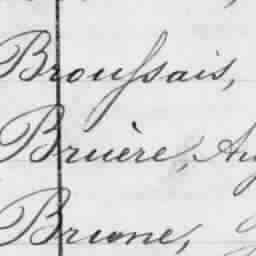 Broussais,
Bruère, Au
Brune,